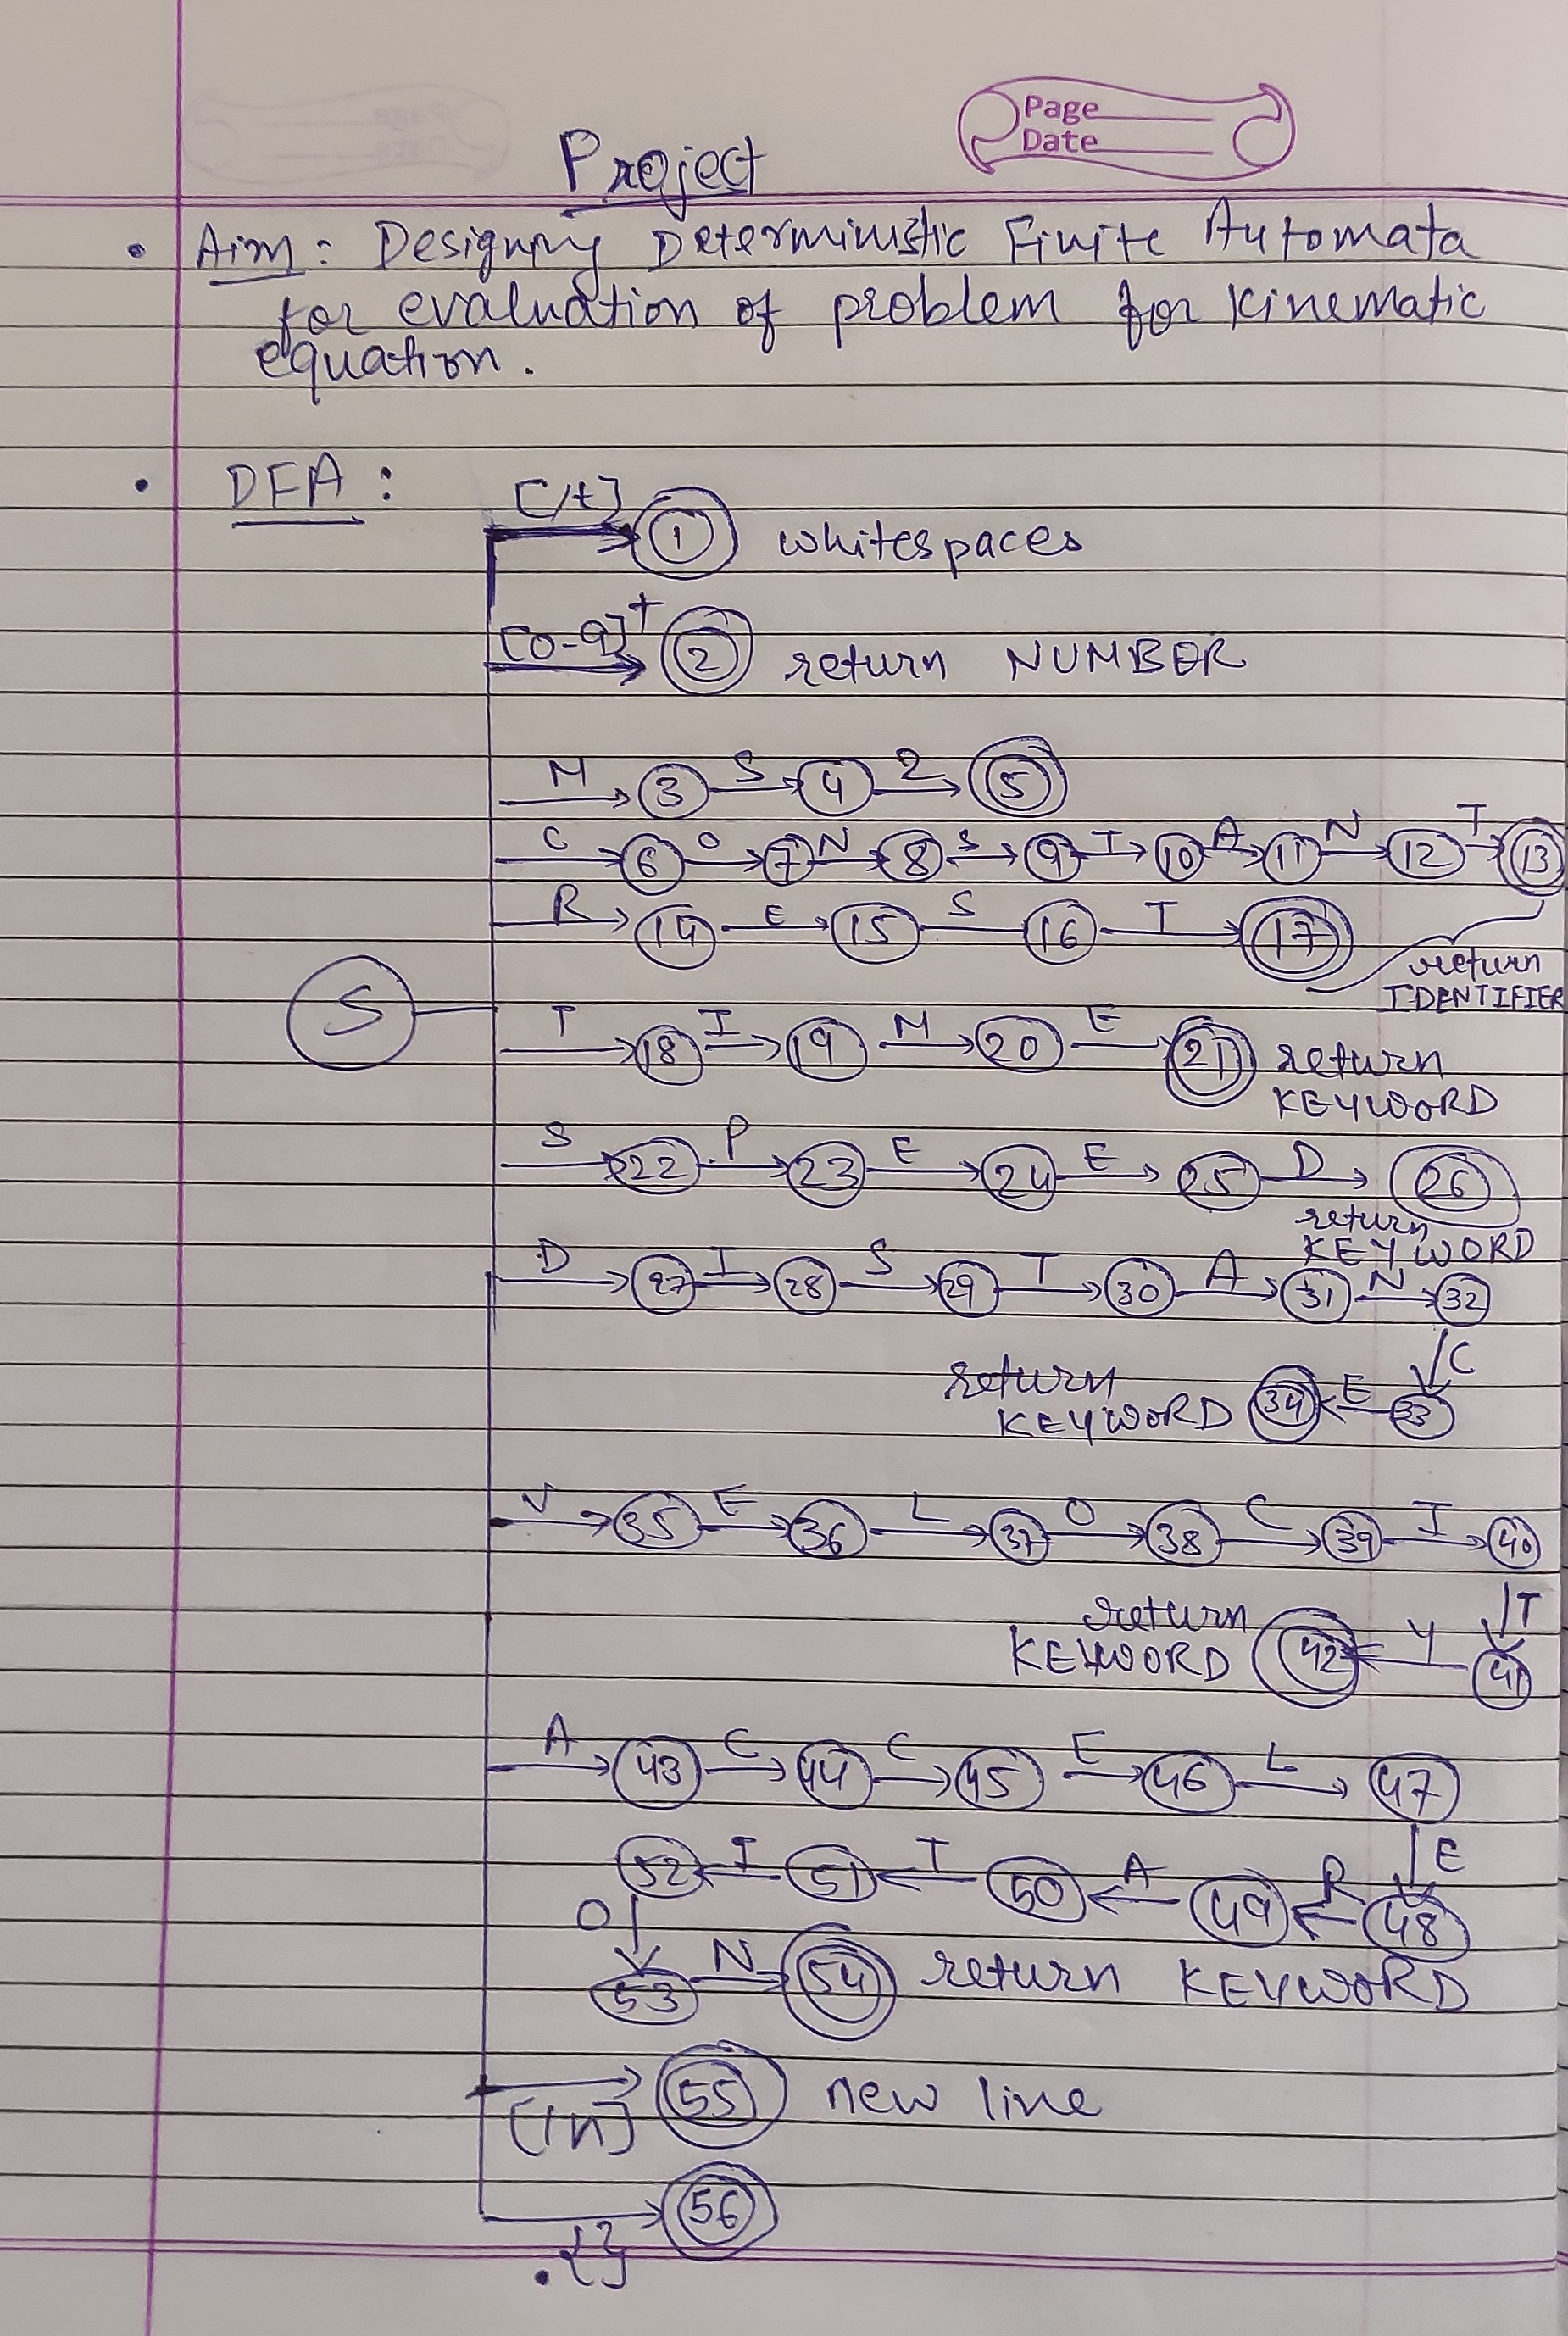 Page
Date
Project
• Aim: Designing Deterministic Finite Automata
for evaluation of problem for kinematic
equation.
• DFA:
[/t] 1 whitespaces
[0-9]+ 2 return NUMBER
M 3 S 4 2 5
C 6 O 7 N 8 S 9 T 10 A 11 N 12 T 13
R 14 E 15 S 16 T 17
return
IDENTIFIER
S
T 18 I 19 M 20 E 21 return
KEYWORD
S 22 P 23 E 24 E 25 D 26
return
KEYWORD
D 27 I 28 S 29 T 30 A 31 N 32
C
return
KEYWORD 34 E 33
V 35 E 36 L 37 O 38 C 39 I 40
T
return
KEYWORD 42 Y 41
A 43 C 44 C 45 E 46 L 47
E
52 I 51 T 50 A 49 R 48
O
53 N 54 return KEYWORD
[\n] 55 new line
.{} 56